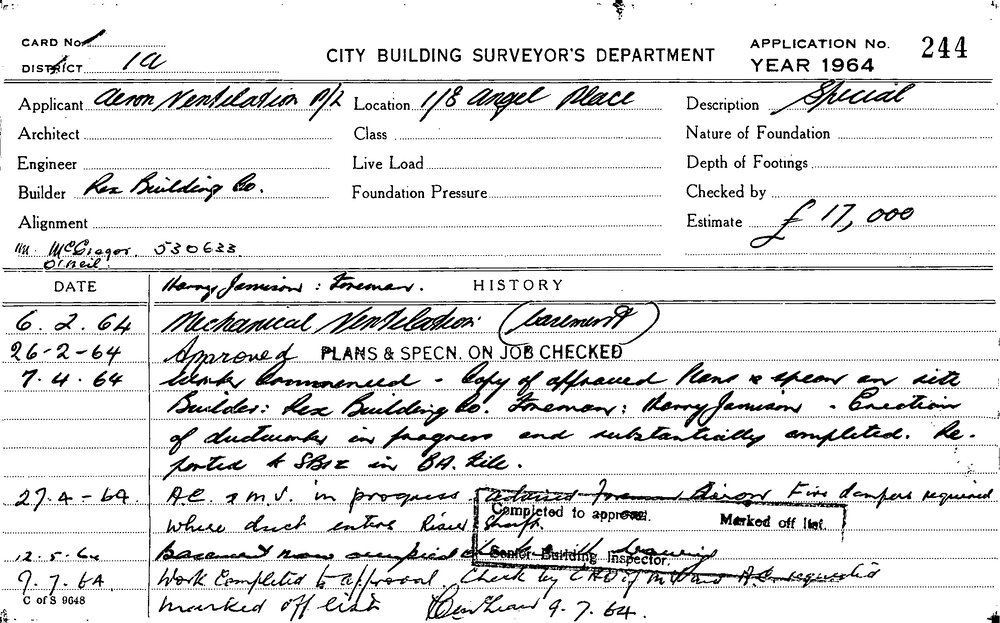 CARD No. 1
DISTRICT 1a
CITY BUILDING SURVEYOR'S DEPARTMENT
APPLICATION No. 244
YEAR 1964
Applicant Aeron Ventilation P/L Location 1/8 Angel Place Description Special
Architect Class Nature of Foundation
Engineer Live Load Depth of Footings
Builder Rex Building Co. Foundation Pressure Checked by
Alignment Estimate £ 17,000
Mr. McGregor. 530633
O'Neil.
DATE Harry Jamison : Foreman. HISTORY
6.2.64 Mechanical Ventilation (basement)
26-2-64 Approved PLANS & SPECN. ON JOB CHECKED
7.4.64 Work Commenced - Copy of approved Plans & specn on site
Builder: Rex Building Co. Foreman: Harry Jamison - Erection
of ductwork in progress and substantially completed. Re-
ported to SBI in BA. file.
27.4-64 A.C. & M.V. in progress Foreman Fire dampers required
where duct enters Riser Shaft.
Completed to approval. Marked off list.
Senior Building Inspector.
12.5.64 Basement now occupied
9.7.64 Work Completed to approval. Check by of requested
C of S 9648
marked off list 9.7.64.